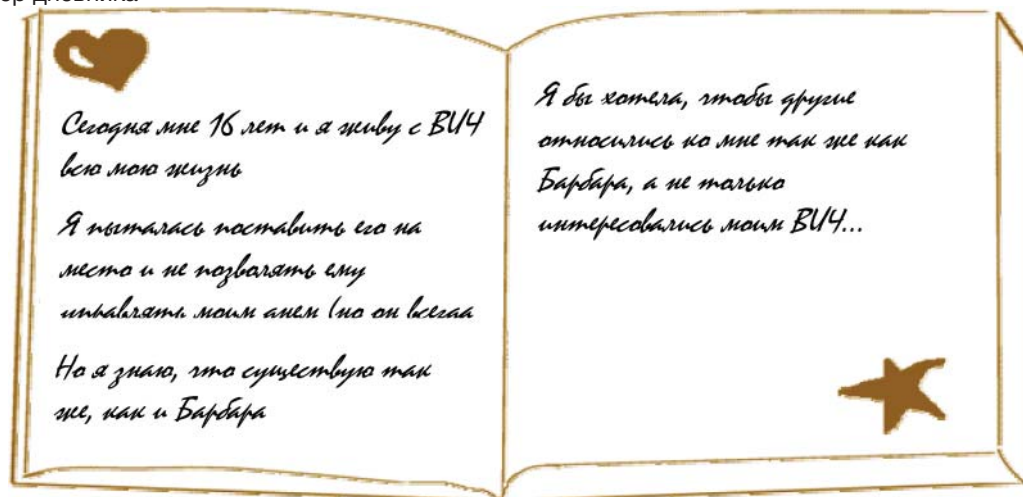 дневника
Сегодня мне 16 лет и я живу с ВИЧ
всю мою жизнь
Я пыталась поставить его на
место и не позволять ему
управлять моим днем (но он всегда
Но я знаю, что существую так
же, как и Барбара
Я бы хотела, чтобы другие
относились ко мне так же как
Барбара, а не только
интересовались моим ВИЧ...